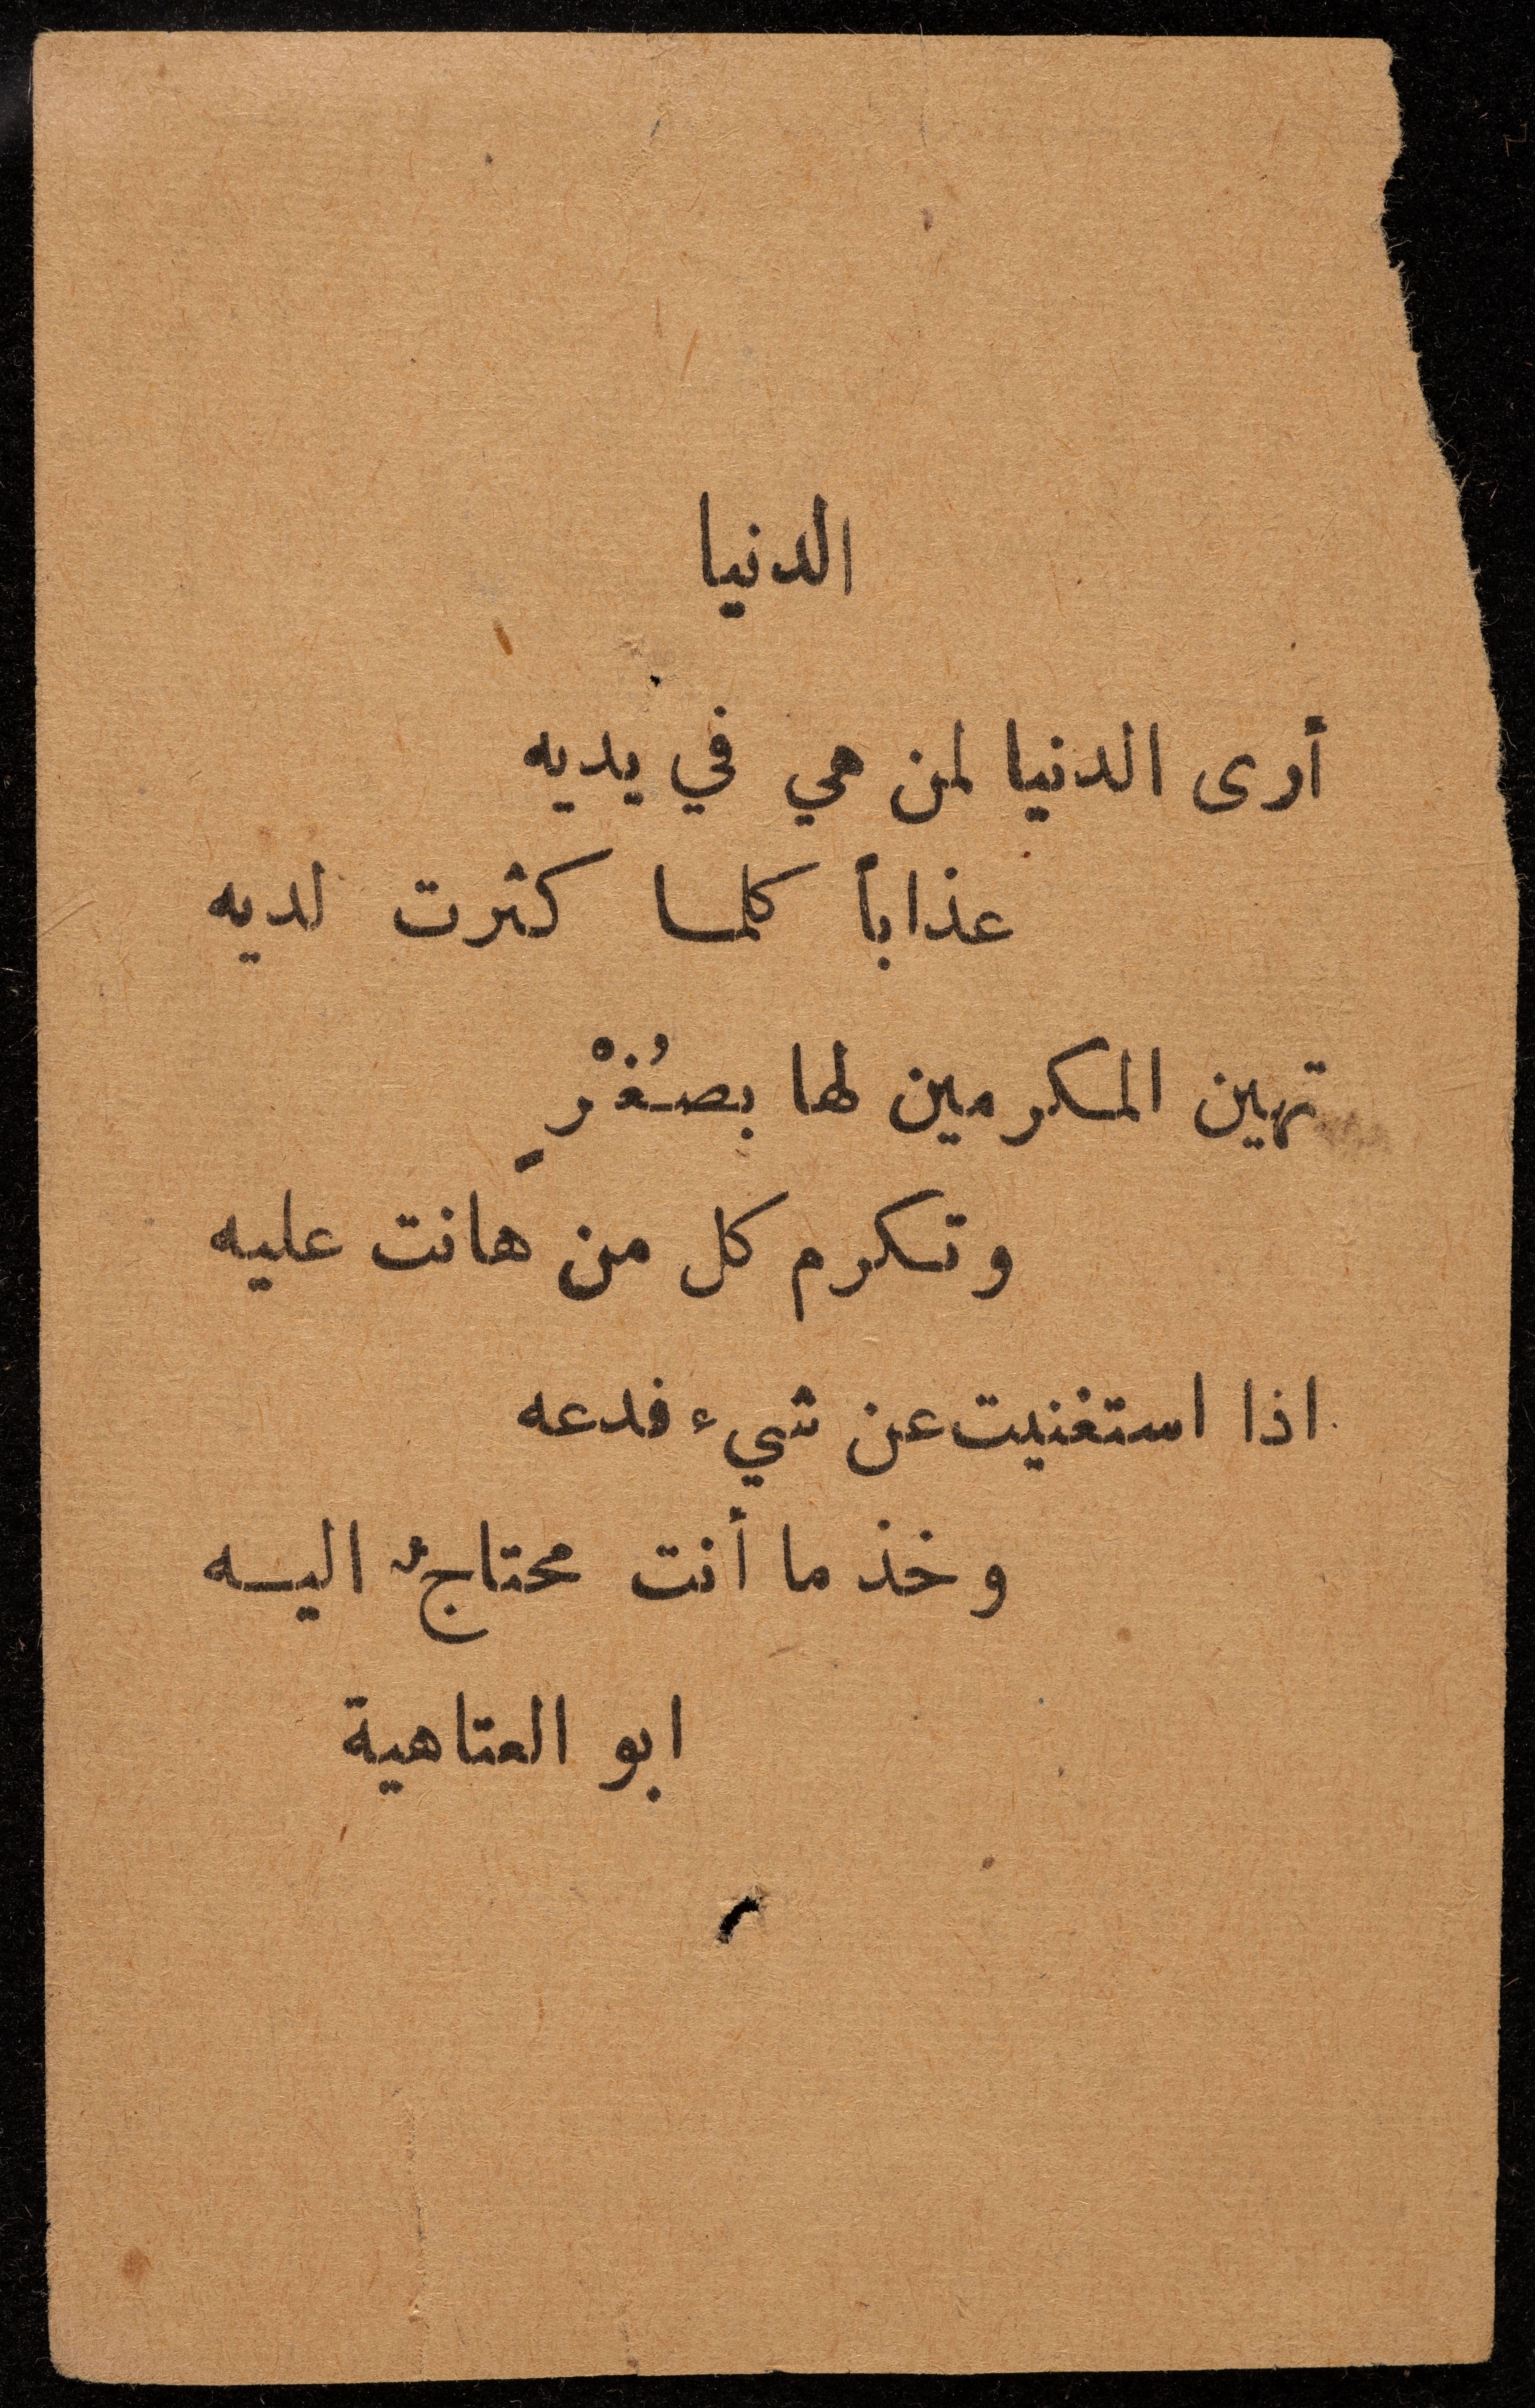 الدنيا
أرى الدنيا لمن هي في يديه
عذاباً كلما كثرت لديه
تهين المكرمين لها بصُغْرٍ
وتكرم كل من هانت عليه
اذا استغنيت عن شيء فدعه
وخذ ما أنت محتاجٌ اليه
ابو العتاهية